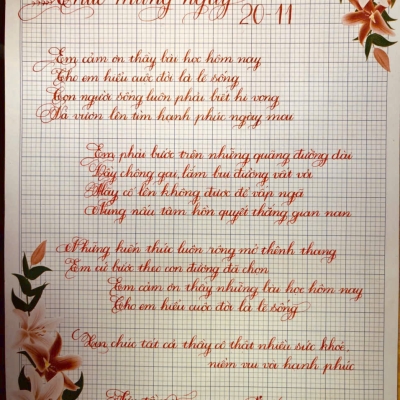 Chúc mừng ngày
20-11
Em cảm ơn thầy bài học hôm nay
Cho em hiểu cuộc đời là lẽ sống
Con người sống luôn phải biết hi vọng
Và vươn lên tìm hạnh phúc ngày mai
Em phải bước trên những quãng đường dài
Đầy chông gai, lấm bụi đường vất vả
Hãy cố lên không được để vấp ngã
Nung nấu tâm hồn quyết thắng gian nan
Những kiến thức luôn rộng mở thênh thang
Em cứ bước theo con đường đã chọn
Em cảm ơn thầy những bài học hôm nay
Cho em hiểu cuộc đời là lẽ sống
Xin chúc tất cả thầy cô thật nhiều sức khoẻ,
niềm vui và hạnh phúc